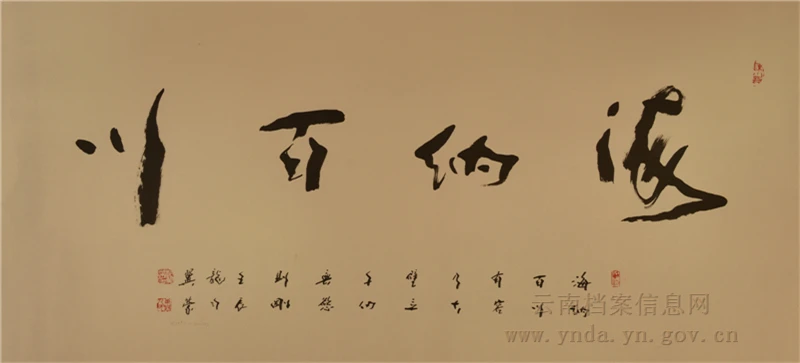 海纳百川
海纳
百川
有容
乃大
壁立
千仞
無慾
则刚
壬辰
云南档案信息网
www.ynda.yn.gov.cn